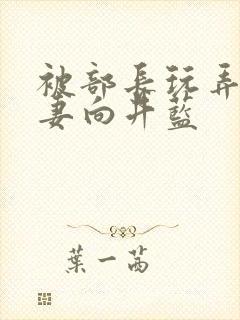 被部長玩弄
妻向井藍
葉一茜